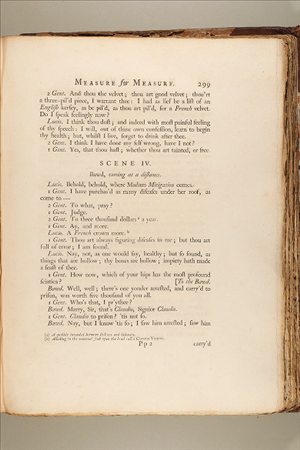 MEASURE for MEASURE. 299
2 Gent. And thou the velvet; thou art good velvet; thou'rt
a three-pil'd piece, I warrant thee: I had as lief be a list of an
English kersey, as be pil'd, as thou art pil'd, for a French velvet.
Do I speak feelingly now?
Lucio. I think thou dost; and indeed with most painful feeling
of thy speech: I will, out of thine own confession, learn to begin
thy health; but, whilst I live, forget to drink after thee.
2 Gent. I think I have done my self wrong, have I not?
1 Gent. Yes, that thou hast; whether thou art tainted, or free.
SCENE IV.
Bawd, coming at a distance.
Lucio. Behold, behold, where Madam Mitigation comes.
1 Gent. I have purchas'd as many diseases under her roof, as
come to —
2 Gent. To what, pray?
1 Gent. Judge.
2 Gent. To three thousand dollars a year.
1 Gent. Ay, and more.
Lucio. A French crown more.
1 Gent. Thou art always figuring diseases in me; but thou art
full of error; I am sound.
Lucio. Nay, not, as one would say, healthy; but so sound, as
things that are hollow; thy bones are hollow; impiety hath made
a feast of thee.
1 Gent. How now, which of your hips has the most profound
sciatica? [To the Bawd.
Bawd. Well, well; there's one yonder arrested, and carry'd to
prison, was worth five thousand of you all.
1 Gent. Who's that, I pr'ythee?
Bawd. Marry, Sir, that's Claudio, Signior Claudio.
1 Gent. Claudio to prison? 'tis not so.
Bawd. Nay, but I know 'tis so; I saw him arrested; saw him
(a) A quibble intended between dollars and dolours.
(b) Alluding to the venereal scab upon the head call'd Corona Veneris.
Pp 2 carry'd